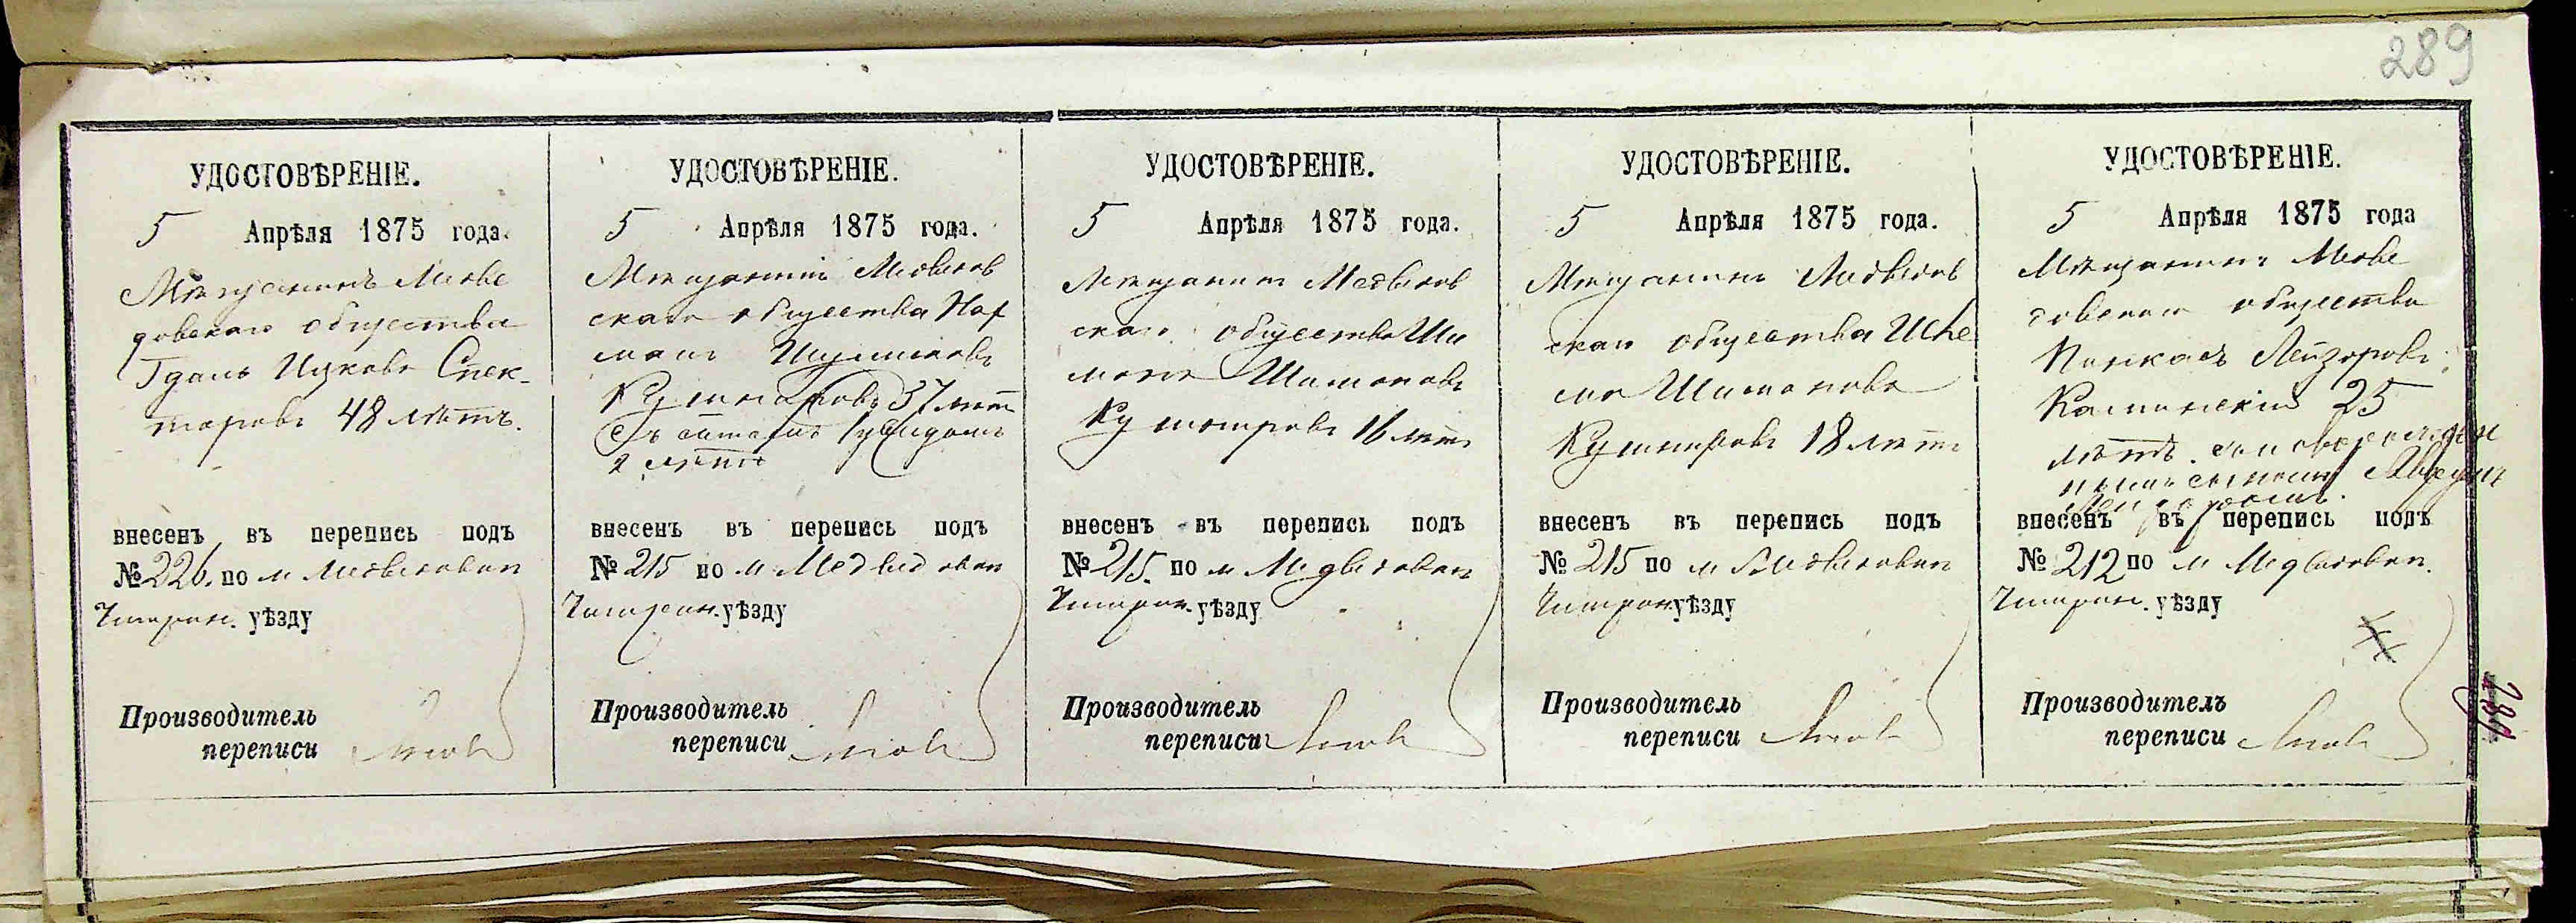 289
УДОСТОВѢРЕНІЕ.
5 Апрѣля 1875 года.
Мѣщанинъ Медве
довскаго общества
Гдаль Ицковъ Спек-
торовъ 48 лѣтъ.
внесенъ въ перепись подъ
№ 226. по м Медведовкѣ
Чигирин. уѣзду
Производитель
переписи
УДОСТОВѢРЕНІЕ.
5 Апрѣля 1875 года.
Мѣщанинъ Медведов
скаго общества Наф
37 лѣтъ
Съ сыномъ
2 лѣтъ
внесенъ въ перепись подъ
№ 215 по м Медведовкѣ
Чигирин. уѣзду
Производитель
переписи
УДОСТОВѢРЕНІЕ.
5 Апрѣля 1875 года.
Мѣщанинъ Медведов
скаго общества Ши
монъ Шимоновъ
Кушнировъ 16 лѣтъ
внесенъ въ перепись подъ
№ 215. по м Медведовкѣ
Чигирин. уѣзду
Производитель
переписи
УДОСТОВѢРЕНІЕ.
5 Апрѣля 1875 года.
Мѣщанинъ Медведов
скаго общества
Шимоновъ
Кушнировъ 18 лѣтъ
внесенъ въ перепись подъ
№ 215 по м Медведовкѣ
Чигирин. уѣзду
Производитель
переписи
УДОСТОВѢРЕНІЕ.
5 Апрѣля 1875 года
Мѣщанинъ Медве
довскаго общества
Пинкасъ Лейзоровъ
Каминскій 25
лѣтъ
внесенъ въ перепись подъ
№ 212 по м Медведовкѣ.
Чигирин. уѣзду
Производитель
переписи
289